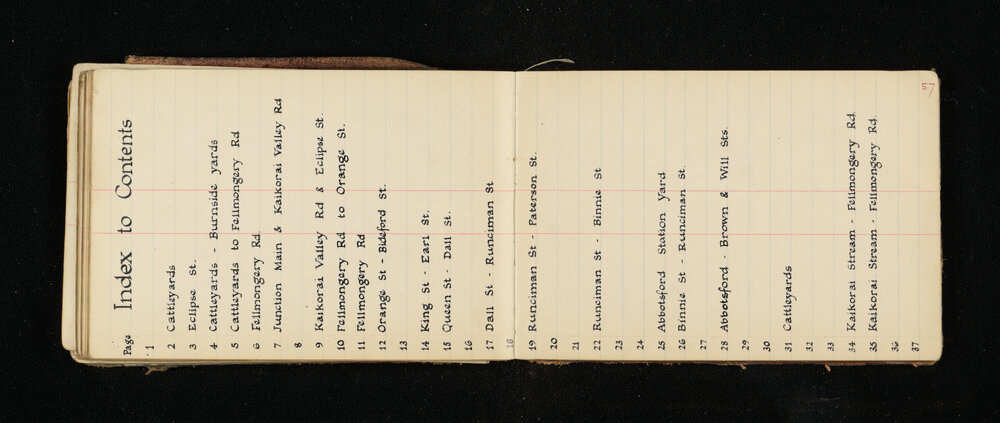 57
Index to Contents
Page
1
2 Cattleyards
3 Eclipse St.
4 Cattleyards - Burnside yards
5 Cattleyards to Fellmongery Rd
6 Fellmongery Rd.
7 Junction Main & Kaikorai Valley Rd
8
9 Kaikorai Valley Rd & Eclipse St.
10 Fellmongery Rd to Orange St.
11 Fellmongery Rd
12 Orange St - Bideford St.
13
14 King St - Earl St.
15 Queen St - Dall St.
16
17 Dall St - Runciman St
18
19 Runciman St - Paterson St.
20
21
22 Runciman St - Binnie St
23
24
25 Abbotsford Station Yard
26 Binnie St - Runciman St.
27
28 Abbotsford - Brown & Will Sts.
29
30
31 Cattleyards
32
33
34 Kaikorai Stream - Fellmongery Rd.
35 Kaikorai Stream - Fellmongery Rd.
36
37